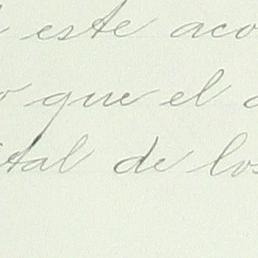 es este aco
que el
tal de los